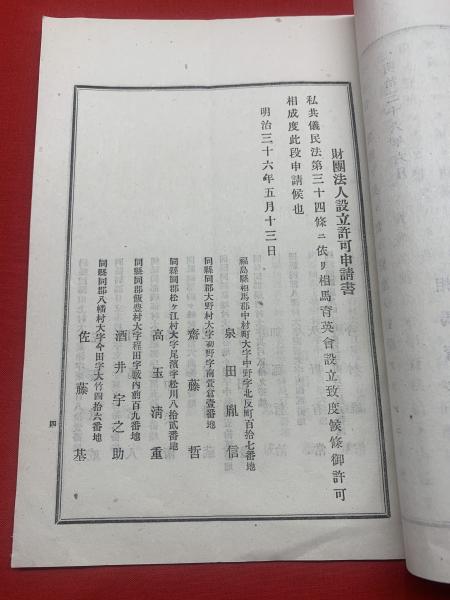 財團法人設立許可申請書
私共儀民法第三十四條ニ依リ相馬育英會設立致度候條御許可
相成度此段申請候也
明治三十六年五月十三日
福島縣相馬郡中村町大字中野字北反町百拾七番地
泉田胤信
同縣同郡大野村大字初野字南萱倉壹番地
齋藤哲
同縣同郡松ヶ江村大字尾濱字松川八拾貳番地
高玉淸重
同縣同郡飯豊村大字程田字馼內前百九番地
酒井宇之助
同縣同郡八幡村大字今田字大竹四拾六番地
佐藤基
四